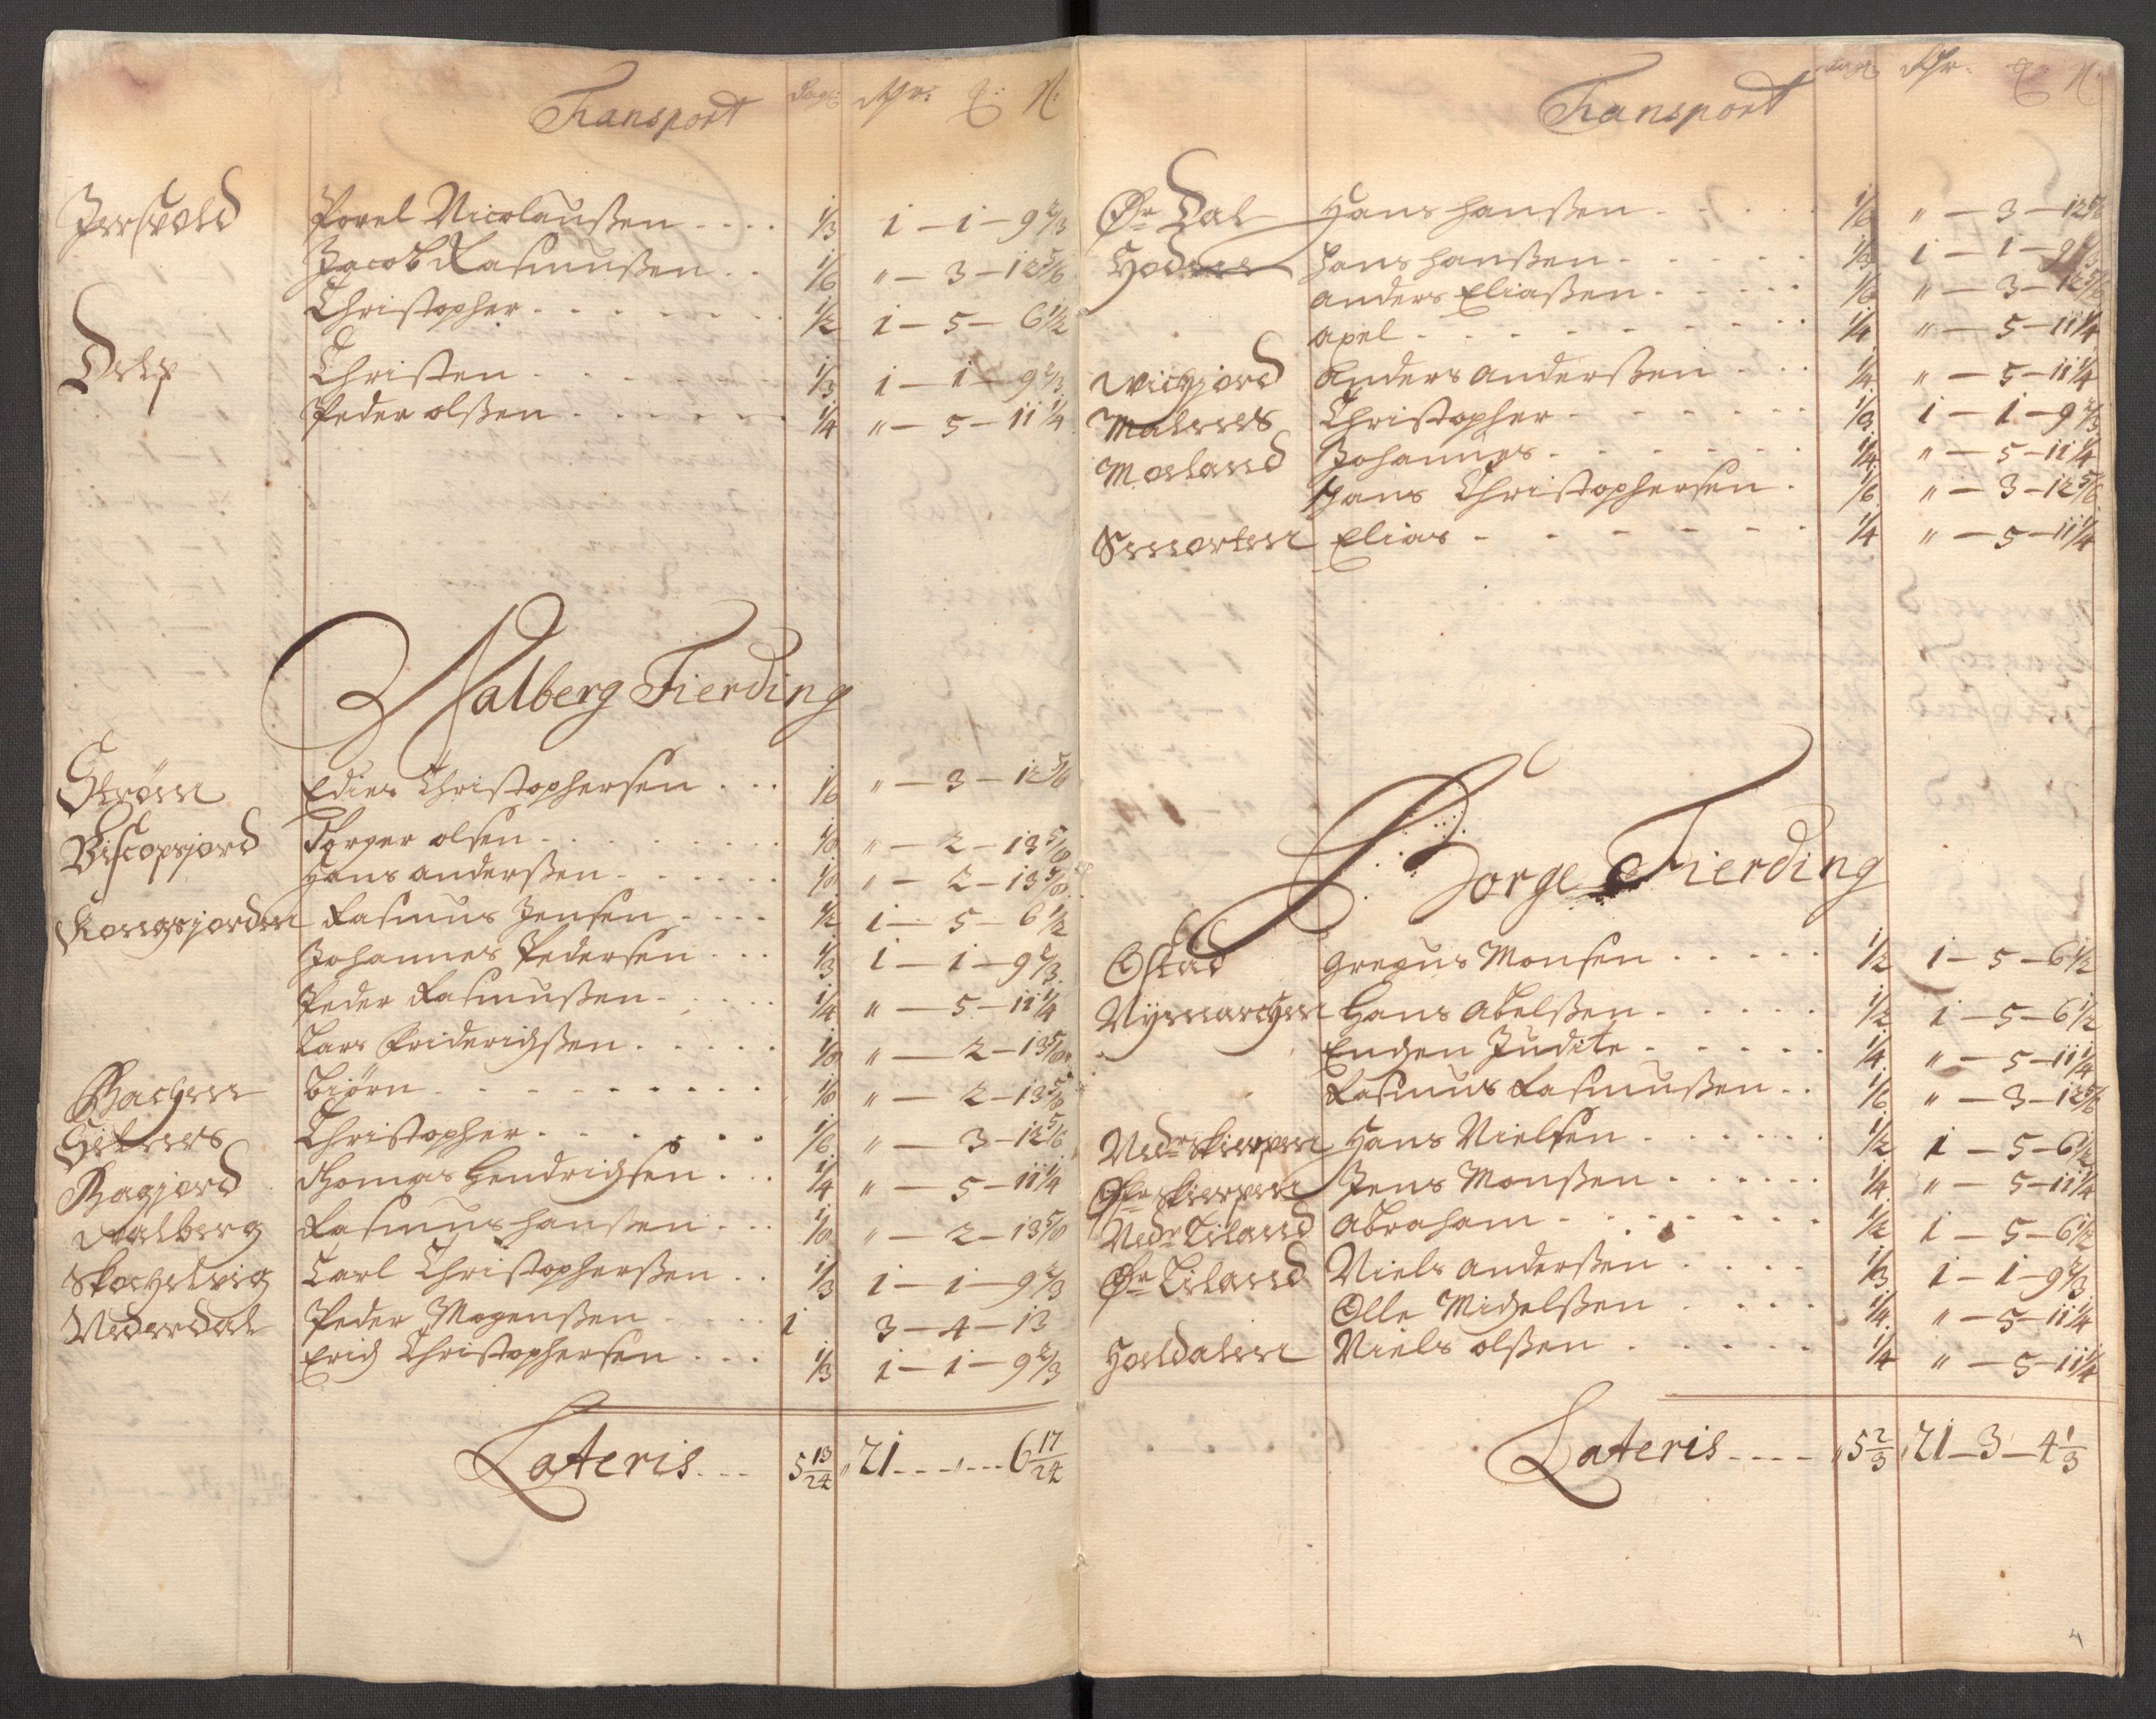 Transport dage: Rdr: 
Jerstvold Povel Nicolaussen .... 1/3 1 - 1 - 9 2/3
Jacob Rasmussen .. 1/6 " - 3 - 12 5/6
Christopher ....... 1/2 1 - 5 - 6 1/2
Christen ....... 1/3 1 - 1 - 9 2/3
Peder olssen ....... 1/4 " - 5 - 11 1/4
Valberg Fierding
Strøm Christophersen ... 1/6 " - 3 - 12 5/6
Biscopsjord Torger olsen ........ 1/8 " - 2 - 13 5/8
Hans anderssen ...... 1/8 " - 2 - 13 5/8
Kongsjorden Rasmus Jensen .... 1/2 1 - 5 - 6 1/2
Johannes Pedersen ... 1/3 1 - 1 - 9 2/3
Peder Rasmussen ..... 1/4 " - 5 - 11 1/4
Lars Friderichssen ..... 1/8 " - 2 - 13 5/8
Bachen Biørn ......... 1/8 " - 2 - 13 5/8
Christopher ....... 1/6 " - 3 - 12 5/6
Hagjord Thomas Hendrichsen ... 1/4 " - 5 - 11 1/4
Valberg Rasmus hanssen ... 1/8 " - 2 - 13 5/8
Skochelvig Carl Christopherssen .. 1/3 1 - 1 - 9 2/3
Nederdal Peder Mogenssen ..... 1 3 - 4 - 13
Erich Christophersen ... 1/3 1 - 1 - 9 2/3
Lateris ... 5 13/24 " 21 ... " ... 6 17/24
Transport dage: Rdr: 
Øfr Dal Hans hanssen ...... 1/6 " - 3 - 12 5/6
Hans hanssen ...... 1/3 1 - 1 - 9 2/3
anders Eliassen ..... 1/6 " - 3 - 12 5/6
Axel ......... 1/4 " - 5 - 11 1/4
Vichjord Anders anderssen ... 1/4 " - 5 - 11 1/4
Malnes Christopher ...... 1/3 1 - 1 - 9 2/3
Morland Johannes ....... 1/4 " - 5 - 11 1/4
Hans Christophersen . 1/6 " - 3 - 12 5/6
Smorten Elias ....... 1/4 " - 5 - 11 1/4
Borge Fierding
Østad Gregus Monsen ..... 1/2 1 - 5 - 6 1/2
Nymarchen Hans Abelssen ..... 1/2 1 - 5 - 6 1/2
Enchen Judite ...... 1/4 " - 5 - 11 1/4
Rasmus Rasmussen .. 1/6 " - 3 - 12 5/6
Nedr Skierpen Hans Nielsen ...... 1/2 1 - 5 - 6 1/2
Øfr Skierpen Jens Monssen ...... 1/4 " - 5 - 11 1/4
Nedr Liland Abraham ........ 1/2 1 - 5 - 6 1/2
Øfr Liland Niels anderssen .... 1/3 1 - 1 - 9 2/3
Olle Michelssen .... 1/4 " - 5 - 11 1/4
Holdalen Niels olssen ..... 1/4 " - 5 - 11 1/4
Lateris .... " 5 2/3 21 - 3 - 4 1/3
4